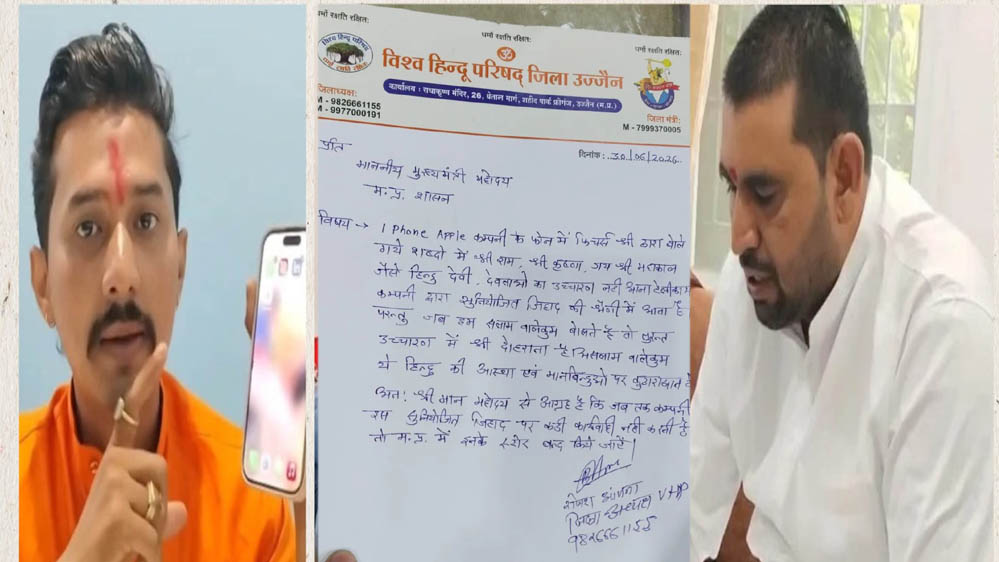 धर्मो रक्षति रक्षित:
धर्मो रक्षति रक्षित:
धर्मो रक्षति रक्षित:
विश्व हिन्दू परिषद्
विश्व हिन्दू परिषद् जिला उज्जैन
कार्यालय : राधाकृष्ण मंदिर, 26, बेताल मार्ग, शहीद पार्क फ्रीगंज, उज्जैन (म.प्र.)
जिलाध्यक्ष:
M - 9826661155
M - 9977000191
जिला मंत्री:
M - 7999370005
दिनांक: 30/06/2026
प्रति
माननीय मुख्यमंत्री महोदय
म.प्र. शासन
विषय → I Phone Apple कम्पनी के फोन में फिचर्स श्री द्वारा बोले
गये शब्दो में श्री राम, श्री कृष्णा, जय श्री महाकाल
जैसे हिन्दु देवी, देवताओ का उच्चारण नही आता
कम्पनी द्वारा सुनियोजित जिहाद की श्रेणी में आता है
परन्तु जब हम सलाम वालेकुम बोलते है तो तुरन्त
उच्चारण में श्री दोहराता है सलाम वालेकुम
ये हिन्दु की आस्था एवं मानबिन्दुओ पर कुठाराघात है
अतः श्री मान महोदय से आग्रह है कि जब तक कम्पनी
इस सुनियोजित जिहाद पर कडी कार्यवाही नही करती है
तो म.प्र. में इनके स्टोर बन्द किये जाऐं।
जिला अध्यक्ष VHP
9826661155